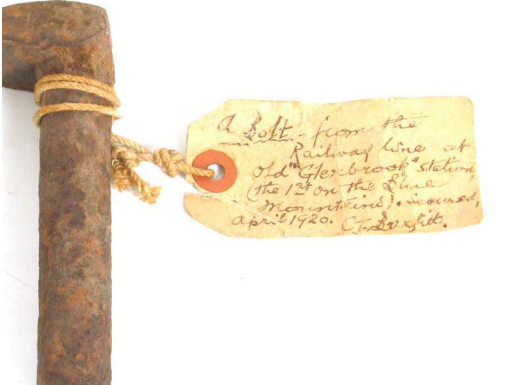 A Bolt - from the
Railway line at
Old "Glenbrook" station
(the 1st on the Blue
Mountains). Secured,
April 1920.